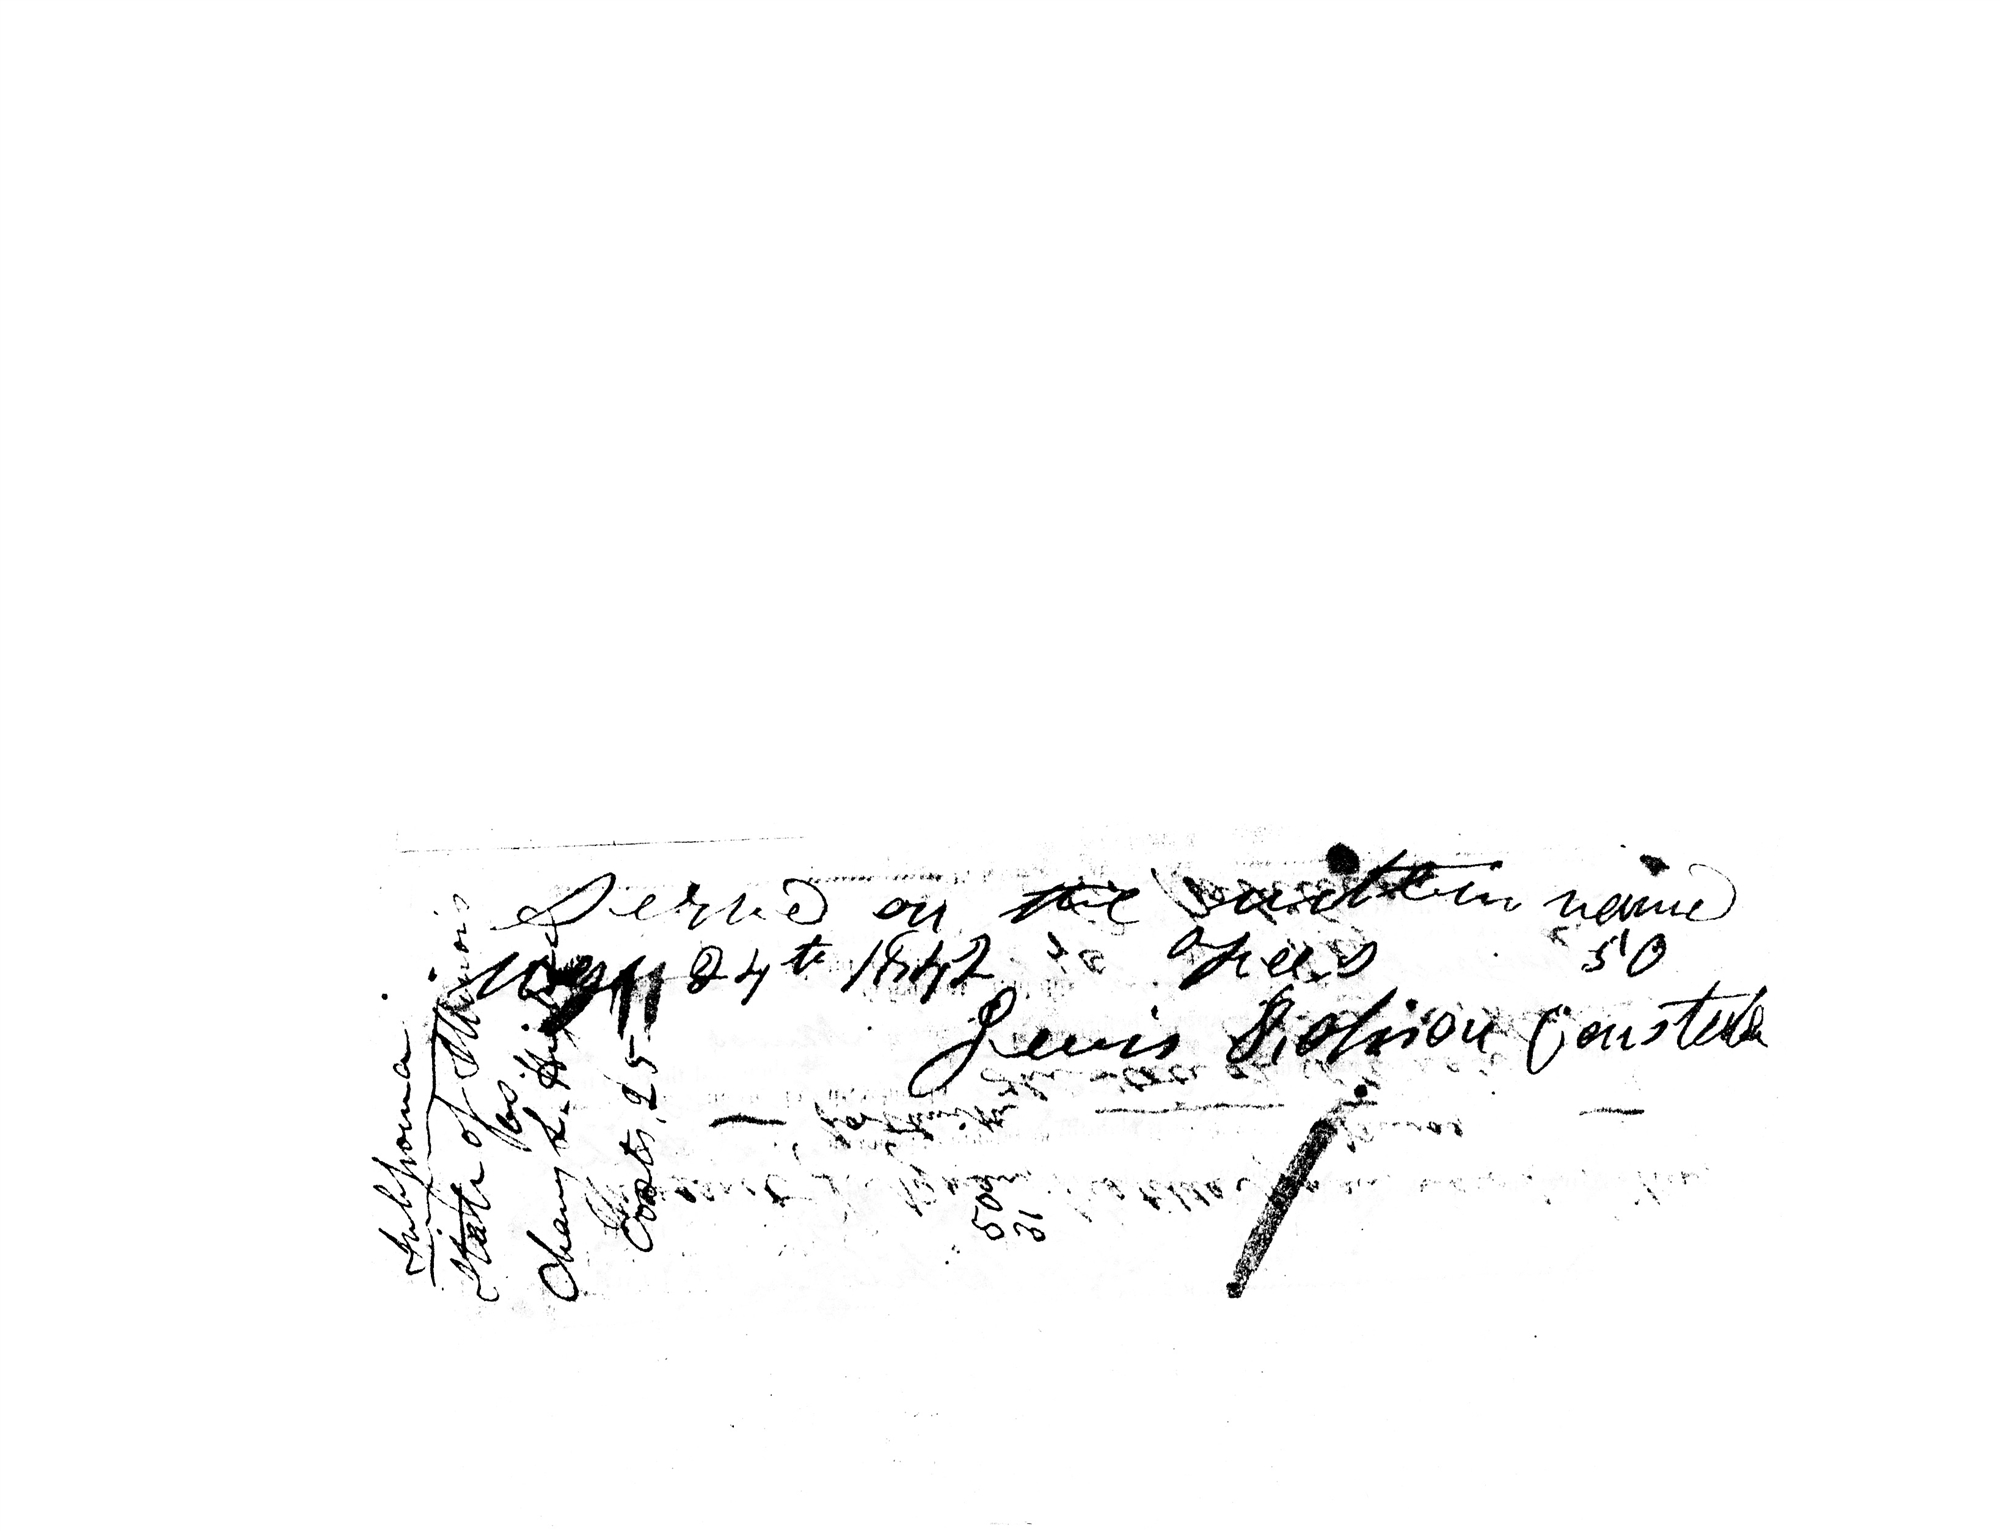 Served on the within name
24th 1842 Fees 50
Lewis Robison Constable
Subpoena
State of Illinois
vs
Chany L. Hig
Costs, 25
50
31